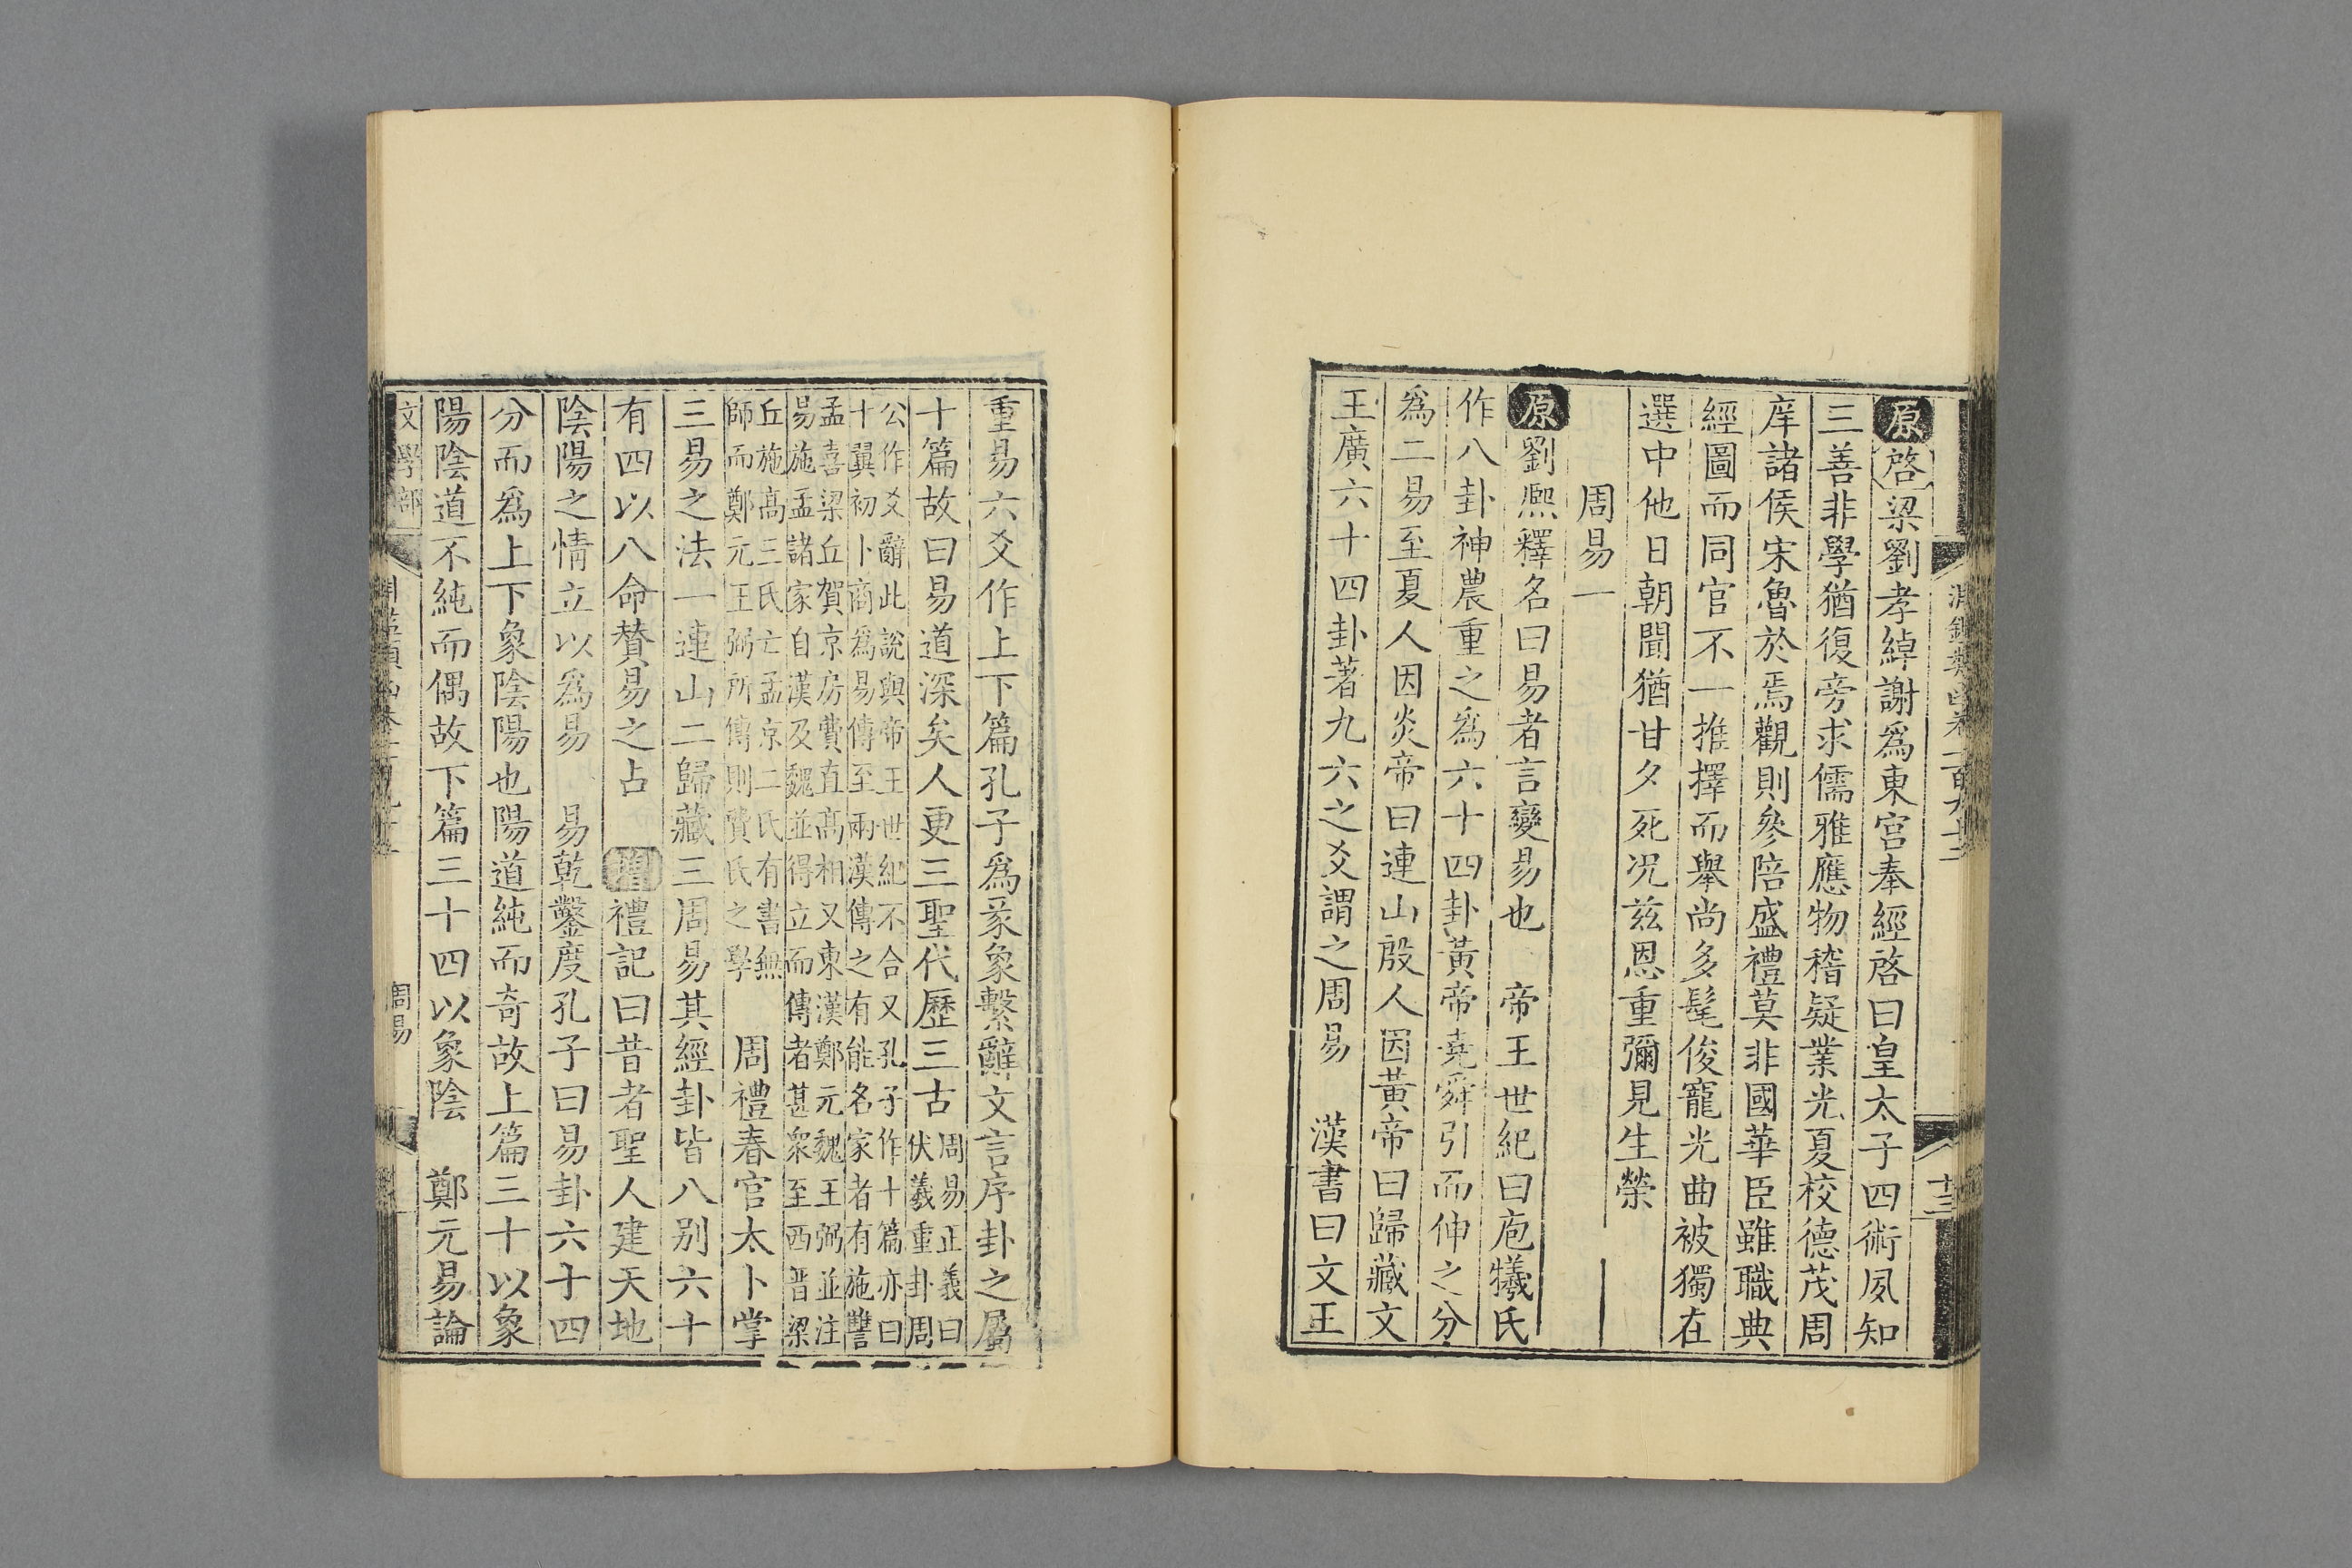 淵鑑類函卷一百九十二
十三
原啓梁劉孝綽謝爲東宮奉經啓曰皇太子四術夙知
三善非學猶復旁求儒雅應物稽疑業光夏校德茂周
庠諸侯宋魯於焉觀則參陪盛禮莫非國華臣雖職典
經圖而同官不一推擇而舉尚多髦俊寵光曲被獨在
選中他日朝聞猶甘夕死况兹恩重彌見生榮
周易一
原劉熈釋名曰易者言變易也 帝王世紀曰庖犧氏
作八卦神農重之爲六十四卦黃帝堯舜引而伸之分
爲二易至夏人因炎帝曰連山殷人因黃帝曰歸藏文
王廣六十四卦著九六之爻謂之周易 漢書曰文王
重易六爻作上下篇孔子爲彖象繫辭文言序卦之屬
十篇故曰易道深矣人更三聖代歷三古周易正義曰
伏羲重卦周
公作爻辭此說與帝王世紀不合又孔子作十篇亦曰
十翼初卜商爲易傳至兩漢傳之有能名家者有施讐
孟喜梁丘賀京房費直高相又東漢鄭元魏王弼並注
易施孟諸家自漢及魏並得立而傳者甚衆至西晋梁
丘施高三氏亡孟京二氏有書無
師而鄭元王弼所傳則費氏之學 周禮春官太卜掌
三易之法一連山二歸藏三周易其經卦皆八别六十
有四以八命贊易之占 增禮記曰昔者聖人建天地
陰陽之情立以爲易 易乾鑿度孔子曰易卦六十四
分而爲上下象陰陽也陽道純而奇故上篇三十以象
陽陰道不純而偶故下篇三十四以象陰 鄭元易論
文學部
周易